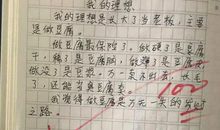 我的理想
我的理想是长大了当老板，主要
是做豆腐。
做豆腐最保险了，做硬了是豆腐
干，稀了是豆腐脑，做薄了是豆腐
做没了是豆浆，万一卖不出去，长毛
了，还能当臭豆腐卖。
我觉得做豆腐是万无一失的
之路。
100